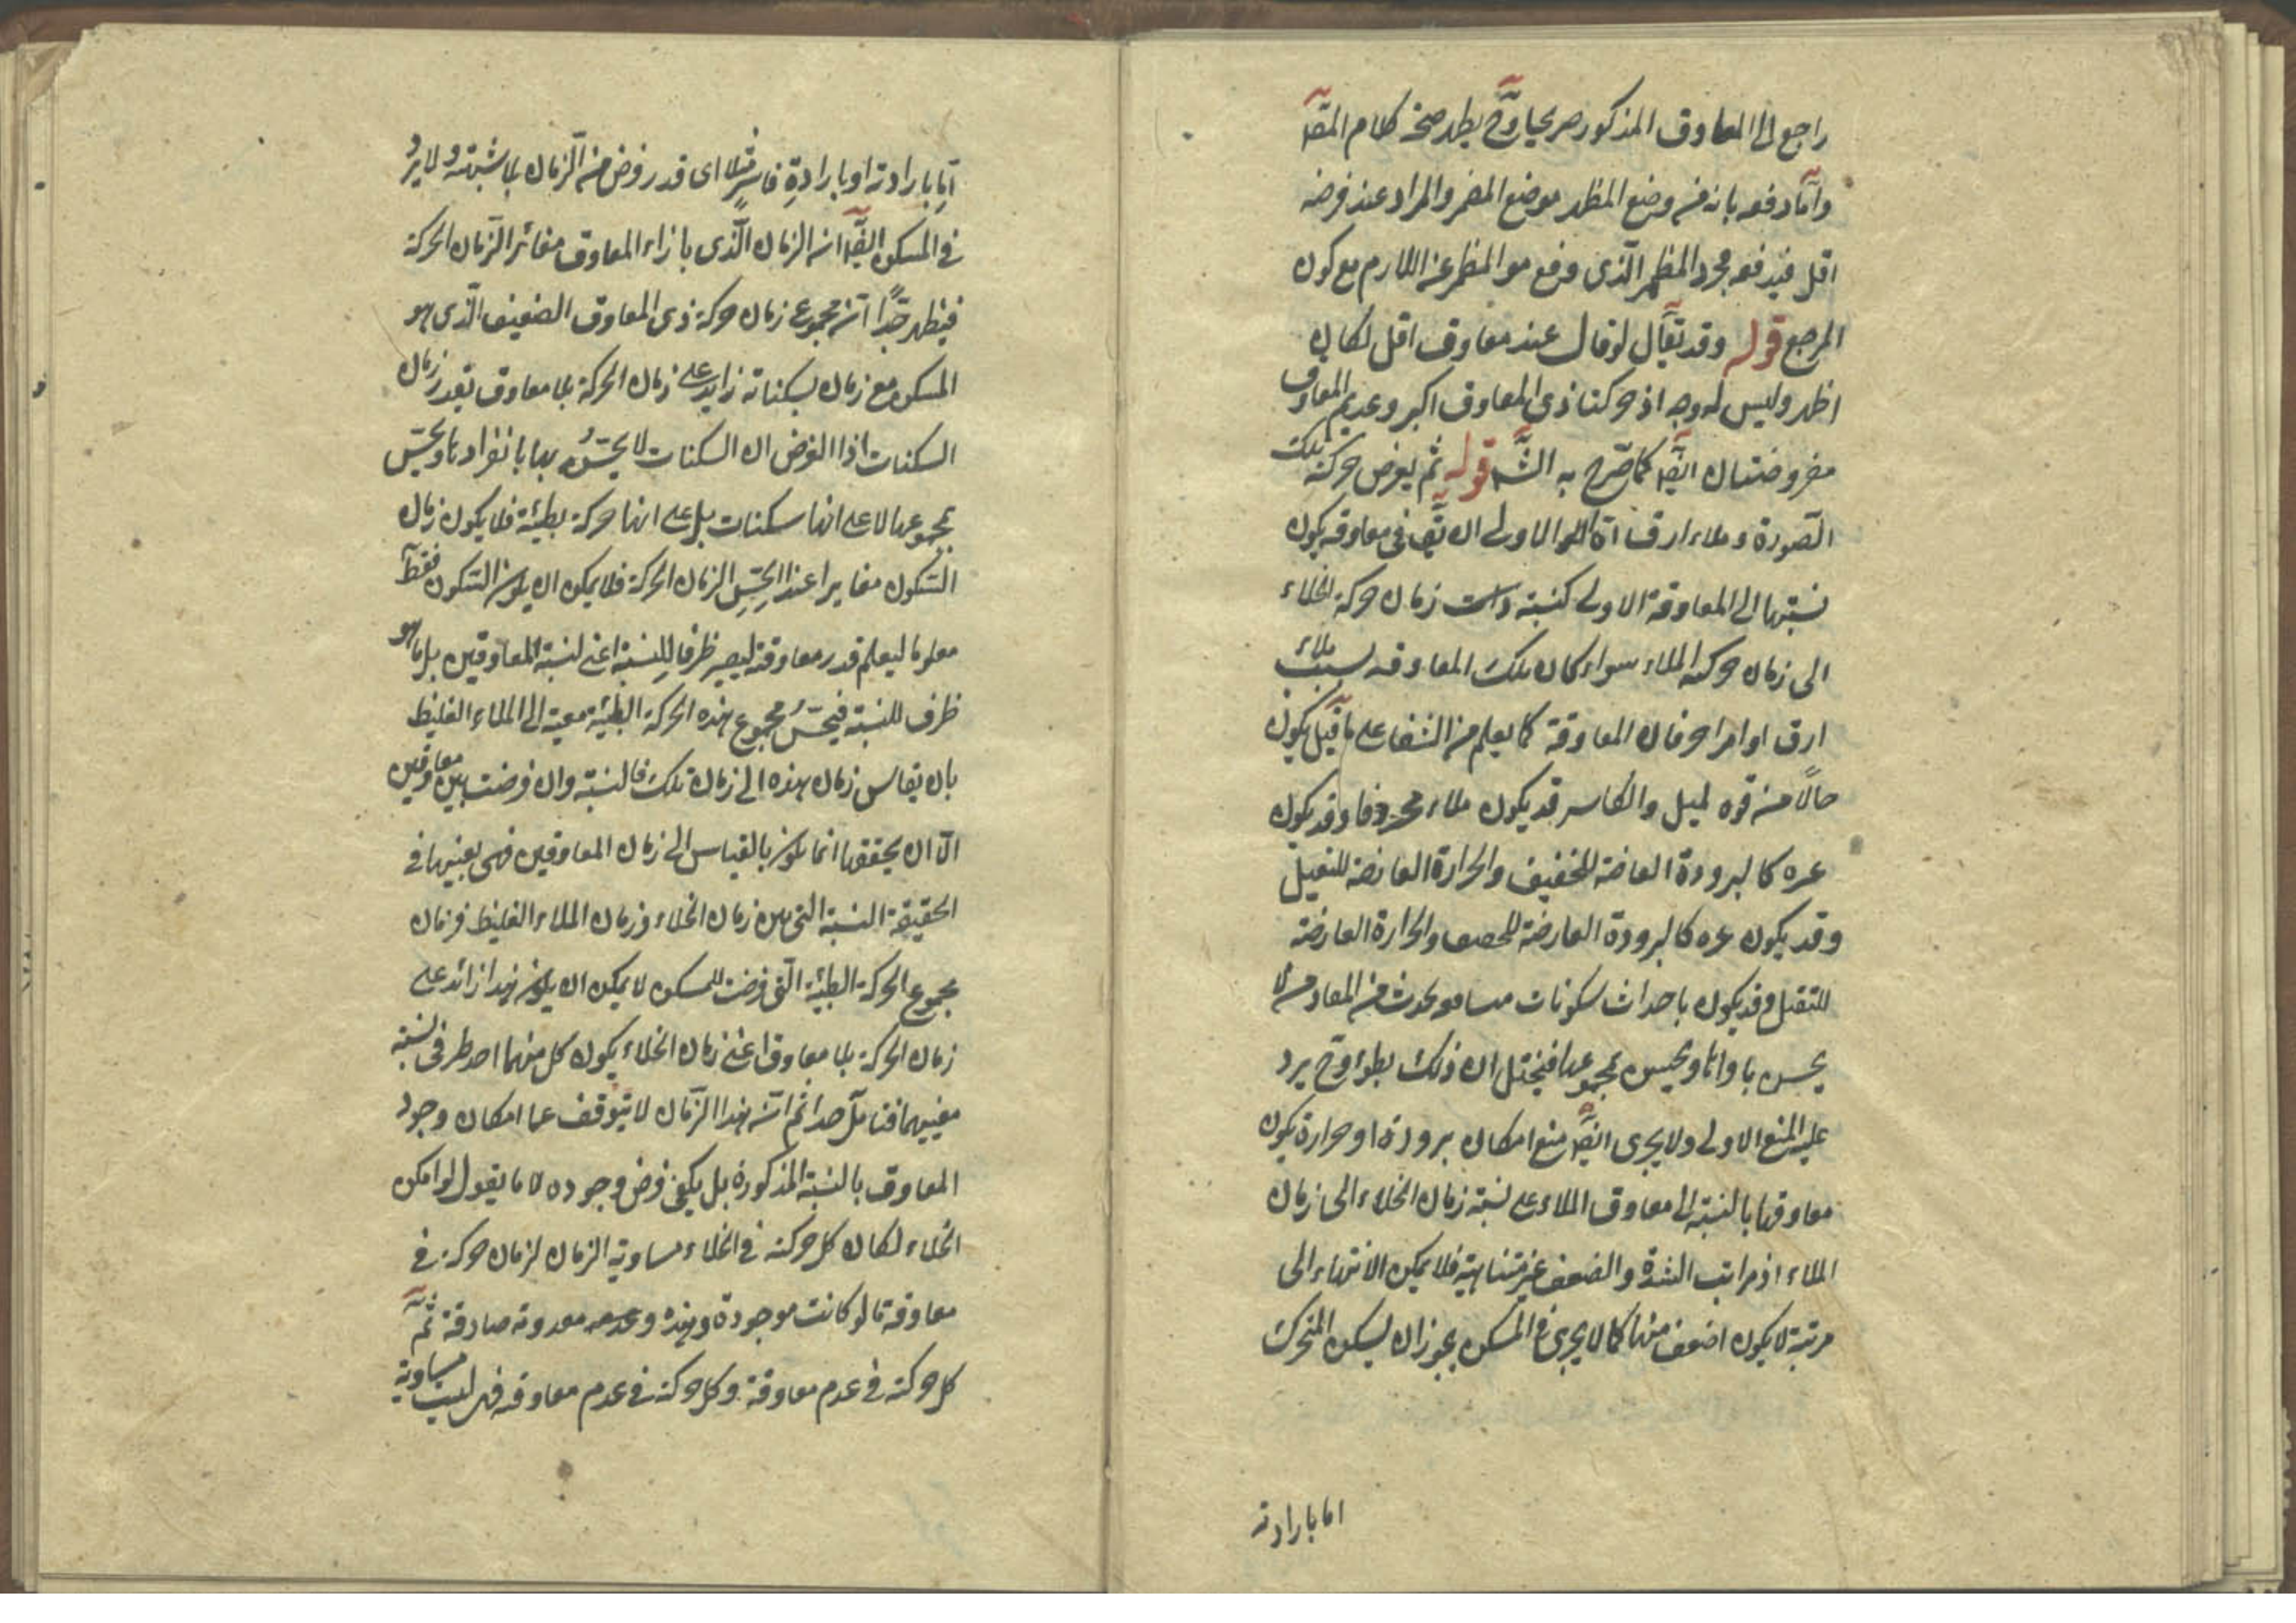 راجع الى المعاوق المذكور صريحا وح يظهر صحة كلام المص
واما دفعه بانه من وضع المظهر موضع المضمر والمراد عند فرضه
اقل فيدفعه مجرد المظهر الذى وقع موالمظهر عن اللازم مع كون
المرجع قوله وقد يقال لو قال عند معاوق اقل لكان
اظهر وليس له وجه اذ حركتا ذى المعاوق اكبر وعديم المعاوق
مفروضتان ايضا كما صرح به الش قوله ثم يفرض حركة تلك
الصورة وملاء ارق الاولى ان يق فى معاوقه يكون
نسبتها الى المعاوقة الاولى كنسبة زمان حركة الخلاء
الى زمان حركة الملاء سواء كان تلك المعاوقه بسبب ملاء
ارق او امرا اخر فان المعاوقة كما يعلم من الشفا على ما قيل يكون
حالا من قوه لميل والكاسر قد يكون ملاء مخروقا وقد يكون
غيره كالبرودة العارضة للخفيف والحرارة العارضة للثقيل
وقد يكون غيره كالبرودة العارضة والحرارة العارضة
للثقيل وقد يكون باحداث سكونات يحدث من المعاوق لا
يحس بافرادها ويحس بمجموعها فيختل ان ذلك بطؤ وح يرد
عليه المنع الاولى ولا يجرى ايضا منع امكان برودة او حرارة يكون
معاوقها بالنسبة الى معاوق الملاء على نسبة زمان الخلاء الى زمان
الملاء اذ مراتب الشدة والضعف غير متناهية فلا يمكن الانتهاء الى
مرتبة لا يكون اضعف منها كما لا يجرى فى المسكن يجوز ان يسكن المتحرك
اما بارادته
اما بارادته او بارادة قاسر مثلا اى قدر فرض من الزمان بلا شبهة ولا يرد
فى المسكن ايضا ان الزمان الذى بازاء المعاوق مغائر الزمان الحركة
فيظهر جدا ان مجموع زمان حركة ذى المعاوق الضعيف الذى هو
المسكن مع زمان سكناته زايد على زمان الحركة بلا معاوق بقدر زمان
السكنات اذا الفرض ان السكنات لا يحس بها بانفرادها ويحس
بمجموعها لا على انها سكنات بل على انها حركة بطيئة فلا يكون زمان
السكون مغايرا عند الحس الزمان الحركة فلا يمكن ان يكون السكون فقط
معلوما ليعلم قدر معاوقته ليصير ظرفا للنسبة اعنى لنسبة المعاوقين بل ما هو
ظرف للنسبة فيحس مجموع هذه الحركة البطيئة معية الى الملاء الغليظ
بان يقاس زمان هذه الى زمان تلك فالنسبة وان فرضت بين معاوقين
الا ان تحققها انما يكون بالقياس الى زمان المعاوقين فهى بعينها فى
الحقيقة النسبة التى بين زمان الخلاء وزمان الملاء الغليظ فزمان
مجموع الحركة البطيئة التى فرضت للمسكن لا يمكن ان يكون هذا زائد على
زمان الحركة بلا معاوق اعنى زمان الخلاء يكون كل منهما احد طرفى نسبة
معينهما فتامل جدا ثم ان هذا الزمان لا يتوقف عما امكان وجود
المعاوق بالنسبة المذكورة بل يكفى فرض وجوده لا ما يقول لو امكن
الخلاء لكان كل حركة فى الخلاء مساوية الزمان لزمان حركة فى
معاوقة ما لو كانت موجودة وهذه صادقة ثم
كل حركة فى عدم معاوقة وكل حركة فى عدم معاوقه فهى ليست مساوية